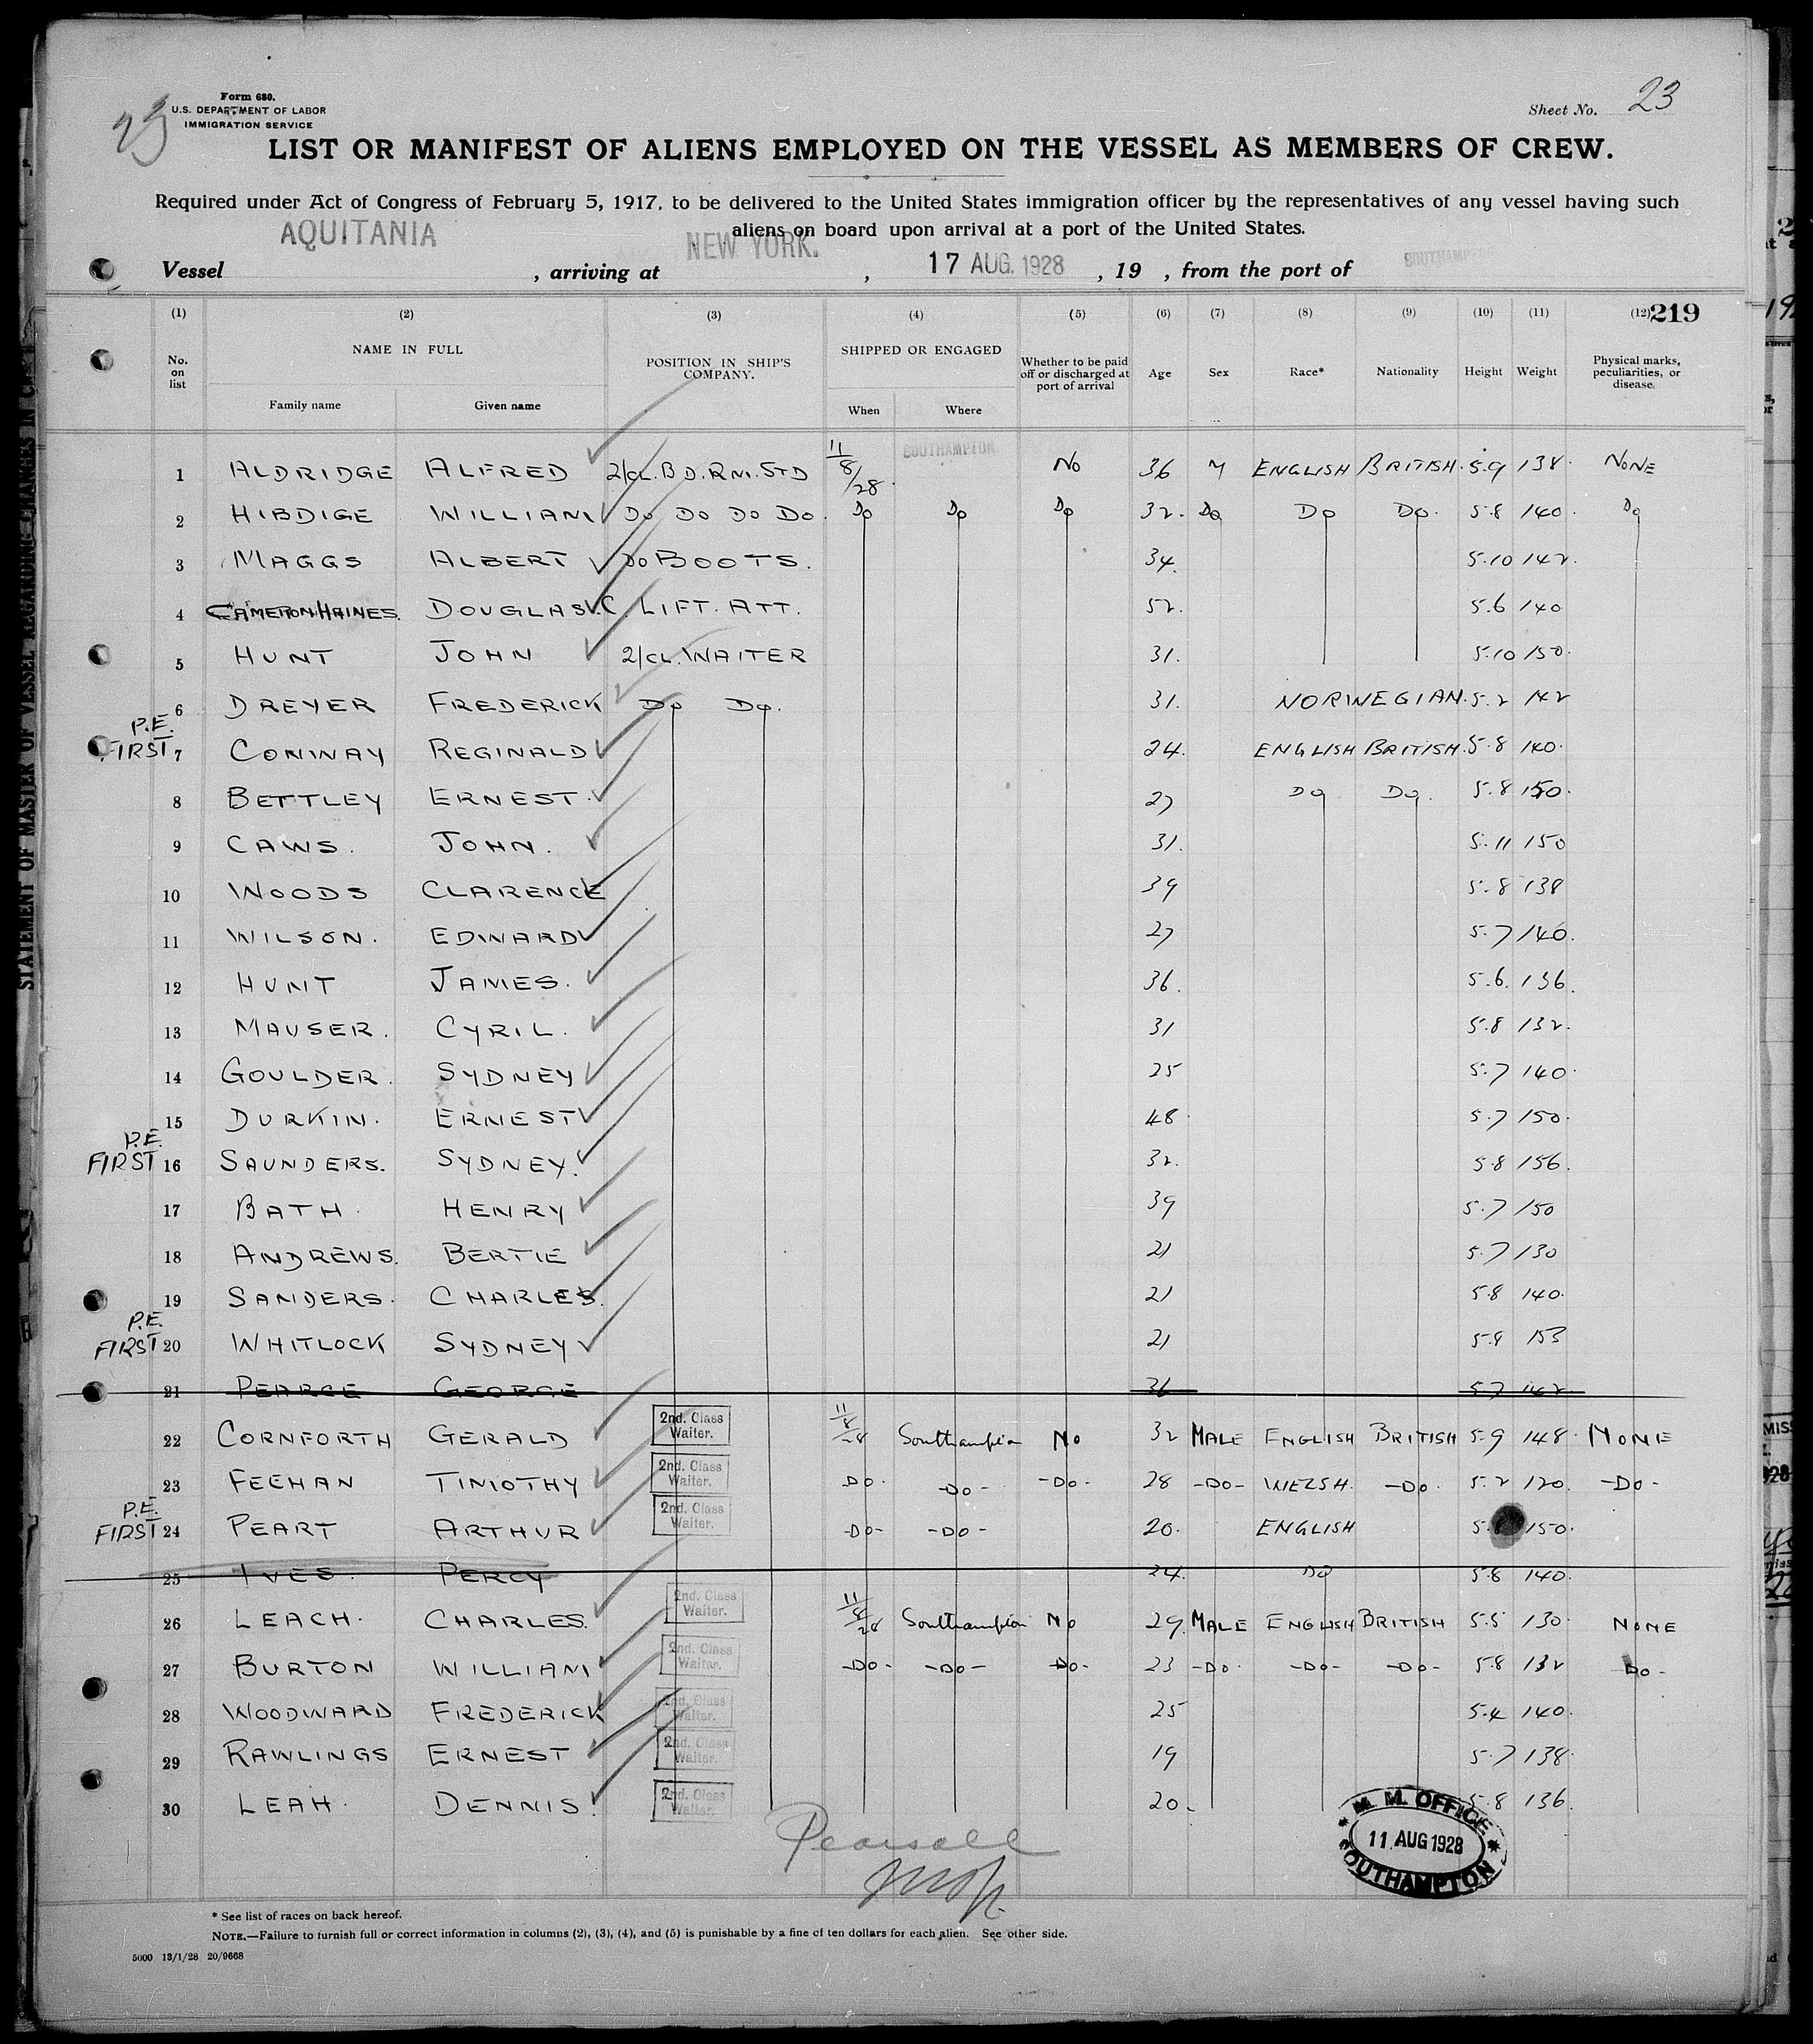 23
Form 680.
U.S. DEPARTMENT OF LABOR
IMMIGRATION SERVICE
Sheet No. 23
LIST OR MANIFEST OF ALIENS EMPLOYED ON THE VESSEL AS MEMBERS OF CREW.
Required under Act of Congress of February 5, 1917, to be delivered to the United States immigration officer by the representatives of any vessel having such
aliens on board upon arrival at a port of the United States.
Vessel AQUITANIA , arriving at NEW YORK. , 17 AUG. 1928 , 19 , from the port of SOUTHAMPTON
(1) (2) (3) (4) (5) (6) (7) (8) (9) (10) (11) (12) 219
No. on list NAME IN FULL POSITION IN SHIP'S COMPANY. SHIPPED OR ENGAGED Whether to be paid off or discharged at port of arrival Age Sex Race* Nationality Height Weight Physical marks, peculiarities, or disease.
Family name Given name When Where
1 ALDRIDGE ALFRED 2/CL. BD. RM. STD 11/8/28 SOUTHAMPTON No 36 M ENGLISH BRITISH. 5.9 138. NONE
2 HIBDIGE WILLIAM Do Do Do Do. Do Do Do 32. Do Do Do. 5.8 140. Do
3 MAGGS ALBERT Do BOOTS. 34. 5.10 142.
4 CAMERON.HAINES. DOUGLAS. C. LIFT. ATT. 52. 5.6 140
5 HUNT JOHN 2/CL. WAITER 31. 5.10 150.
6 DREYER FREDERICK Do Do. 31. NORWEGIAN. 5.2 142
P.E. FIRST 7 CONWAY REGINALD 24. ENGLISH BRITISH. 5.8 140.
8 BETTLEY ERNEST. 27 Do Do. 5.8 150.
9 CAWS. JOHN. 31. 5.11 150
10 WOODS CLARENCE 39 5.8 138
11 WILSON. EDWARD 27 5.7 140.
12 HUNT JAMES. 36. 5.6. 136.
13 MAUSER. CYRIL. 31 5.8 132.
14 GOULDER. SYDNEY 25 5.7 140.
15 DURKIN. ERNEST 48. 5.7 150.
P.E. FIRST 16 SAUNDERS. SYDNEY. 32. 5.8 156.
17 BATH. HENRY 39 5.7 150
18 ANDREWS. BERTIE 21 5.7 130
19 SANDERS. CHARLES. 21 5.8 140.
P.E. FIRST 20 WHITLOCK SYDNEY 21 5.8 153
21 PEARCE GEORGE 36 5.7 142
22 CORNFORTH GERALD 2nd. Class Waiter. 11/8/28 Southampton No 32 MALE ENGLISH BRITISH 5.9 148. NONE
23 FEEHAN TIMOTHY 2nd. Class Waiter. -Do- -Do- -Do- 28 -Do- WELSH. -Do 5.2 120. -Do-
P.E. FIRST 24 PEART ARTHUR 2nd. Class Waiter. -Do- -Do- 20. ENGLISH 5. 150.
25 IVES. PERCY 24. Do 5.8 140.
26 LEACH. CHARLES. 2nd. Class Waiter. 11/8/28 Southampton No 29. MALE ENGLISH BRITISH 5.5 130. NONE
27 BURTON WILLIAM 2nd. Class Waiter. -Do- -Do- -Do- 23 -Do- -Do- -Do- 5.8 132 -Do-
28 WOODWARD FREDERICK 2nd. Class Waiter. 25 5.4 140.
29 RAWLINGS ERNEST 2nd. Class Waiter. 19 5.7 138.
30 LEAH. DENNIS. 2nd. Class Waiter. 20. 5.8 136.
Pearsall
M. M. OFFICE
11 AUG 1928
SOUTHAMPTON
* See list of races on back hereof.
NOTE.—Failure to furnish full or correct information in columns (2), (3), (4), and (5) is punishable by a fine of ten dollars for each alien. See other side.
5000 13/1/28 20/9668